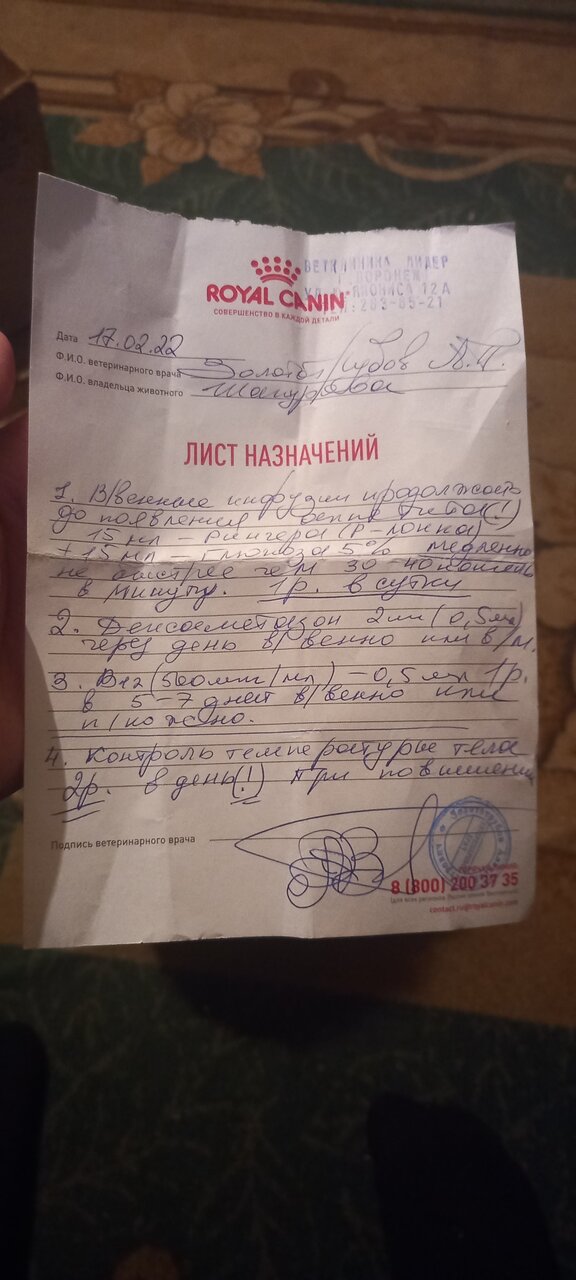 ВЕТКЛИНИКА ЛИДЕР
Г. ВОРОНЕЖ
12А
ROYAL CANIN
СОВЕРШЕНСТВО В КАЖДОЙ ДЕТАЛИ
Дата 17.02.22
Ф.И.О. ветеринарного врача А.П.
Ф.И.О. владельца животного
ЛИСТ НАЗНАЧЕНИЙ
1. В/венные инфузии продолжать
до появления аппетита(!)
15 мл – Рингера (Р-Локка)
+ 15 мл – Глюкоза 5% медленно
не быстрее чем 30-40 капель
в минуту. 1р. в сутки
2. 2мг (0,5мл)
через день в/венно или в/м.
3. В12 (500мкг/мл) – 0,5мл 1р.
в 5-7 дней в/венно или
п/кожно.
4. Контроль температуры тела
2р. в день(!) При повышении
Подпись ветеринарного врача
8 (800) 200 37 35
contact.ru@royalcanin.com